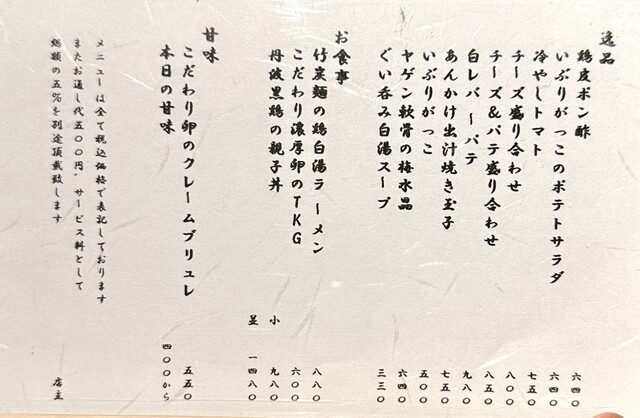 逸品
鶏皮ポン酢 六四〇
いぶりがっこのポテトサラダ 六四〇
冷やしトマト 七五〇
チーズ盛り合わせ 八〇〇
チーズ&パテ盛り合わせ 八五〇
白レバーパテ 九八〇
あんかけ出汁焼き玉子 七五〇
いぶりがっこ 五〇〇
ヤゲン軟骨の梅水晶 六四〇
ぐい呑み白湯スープ 三三〇
お食事
竹炭麺の鶏白湯ラーメン 八八〇
こだわり濃厚卵のTKG 六〇〇
丹波黒鶏の親子丼 小 九八〇
並 一四八〇
甘味
こだわり卵のクレームブリュレ 五五〇
本日の甘味 四〇〇から
メニューは全て税込価格で表記しております
またお通し代五〇〇円、サービス料として
総額の五%を別途頂戴致します
店主